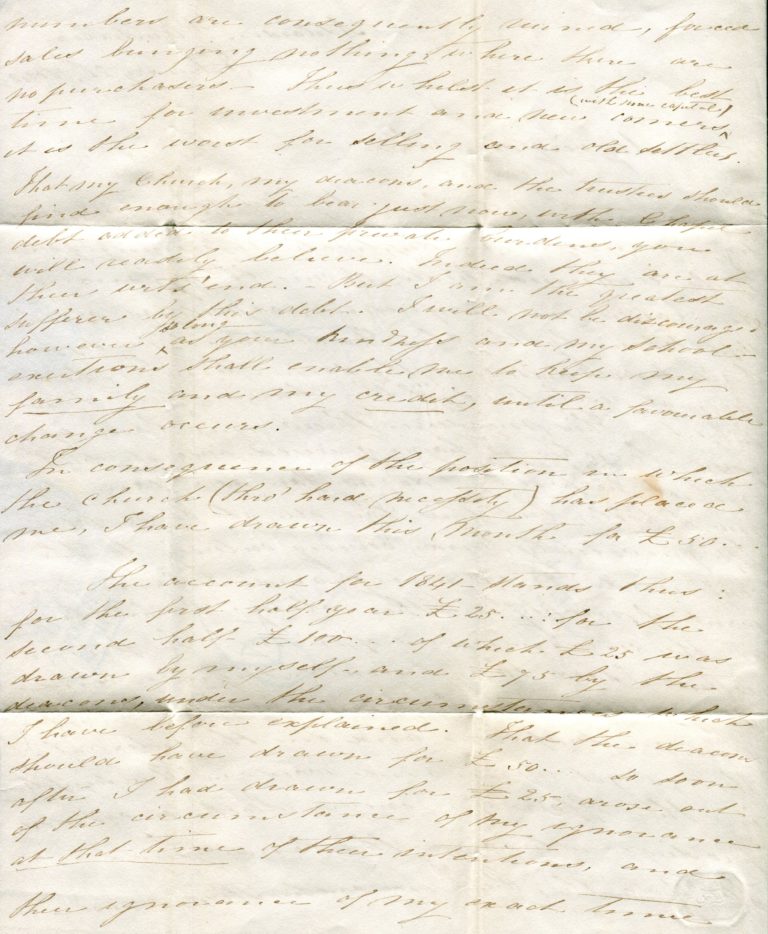 numbers are consequently ruined, forced
sales bringing nothing where there are
no purchasers — Thus whilst it is the best
time for investment and new comers (with some capital)
it is the worst for selling and old settlers.
That my Church, my deacons, and the trustees should
find enough to bear just now, with Chapel
debt added to their private burdens, you
will readily believe. Indeed they are at
their wits' end. — But I am the greatest
sufferer by this debt. I will not be discouraged
however so long as your kindness and my school
exertions shall enable me to keep my
family and my credit, until a favourable
change occurs.
In consequence of the position in which
the church (thro' hard necessity) has placed
me, I have drawn this month for £50...
The account for 1841 stands thus:
for the first half year £25...: for the
second half £100... of which £25 was
drawn by myself and £75 by the
deacons, under the circumstances which
I have before explained. That the deacons
should have drawn for £50... so soon
after I had drawn for £25, arose out
of the circumstance of my ignorance
at that time of their intentions, and
their ignorance of my exact time